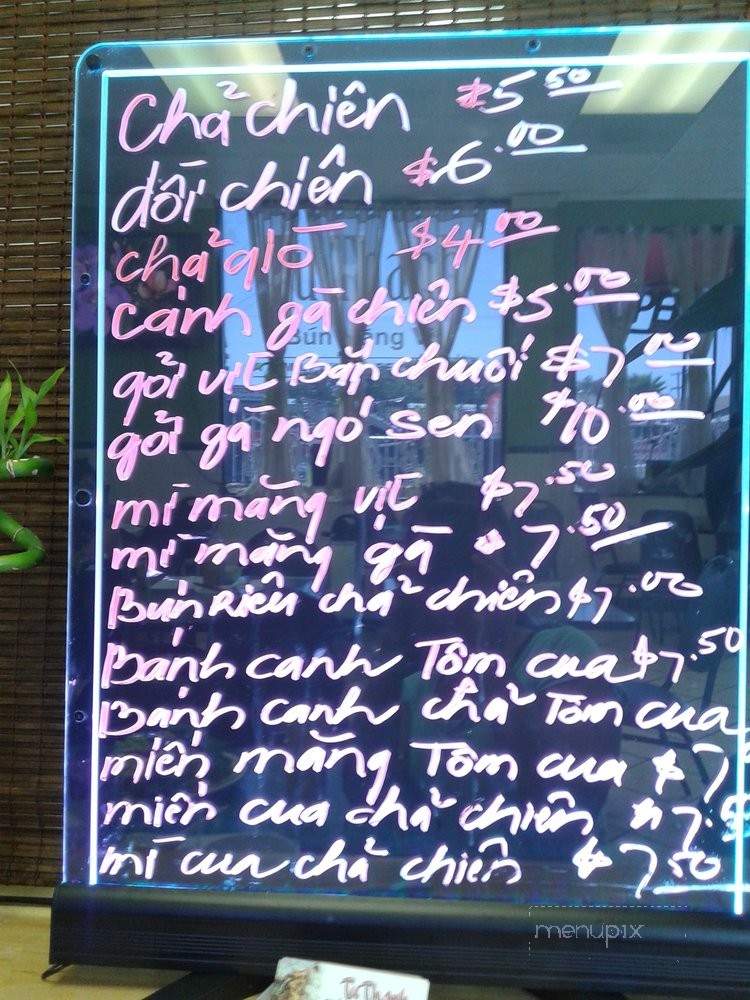 Chả chiên $5.50
dồi chiên $6.00
chả giò $4.00
cánh gà chiên $5.00
gỏi vịt Bắp chuối $7.00
gỏi gà ngó sen $10.00
mì măng vịt $7.50
mì măng gà $7.50
Bún Riêu chả chiên $7.00
Bánh canh Tôm cua $7.50
Bánh canh chả Tôm cua
miến măng Tôm cua $7
miến cua chả chiên $7.5
mì cua chả chiên $7.50
menupix